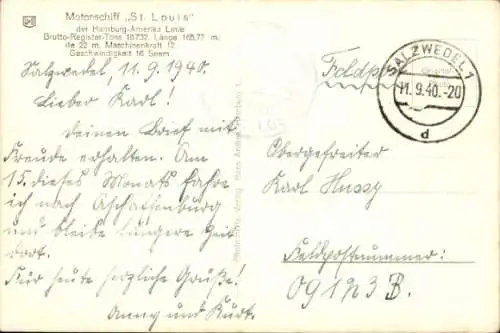 Motorschiff „St. Louis"
der Hamburg-Amerika Linie
Brutto-Register-Tons 16732. Länge 165,77 m.
ite 22 m. Maschinenkraft 12
Geschwindigkeit 16 Seem.
Salzwedel, 11. 9. 1940.
Lieber Karl!
deinen Brief mit
Freude erhalten. Am
15. dieses Monats fahre
ich nach Aschaffenburg
und bleibe längere Zeit
dort.
Für heute herzliche Grüße!
Anny und Kurt.
Feldpost
SALZWEDEL 1
11. 9. 40. -20
d
Obergefreiter
Karl Hussy
Feldpostnummer:
09123 B.